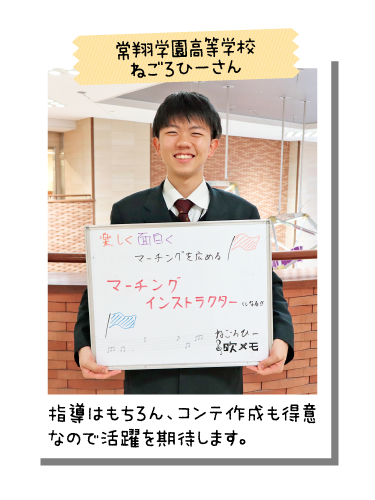 常翔学園高等学校
ねごろひーさん
楽しく面白く
マーチングを広める
マーチング
インストラクター
になるぞ
ねごろひー
欧メモ
指導はもちろん、コンテ作成も得意
なので活躍を期待します。